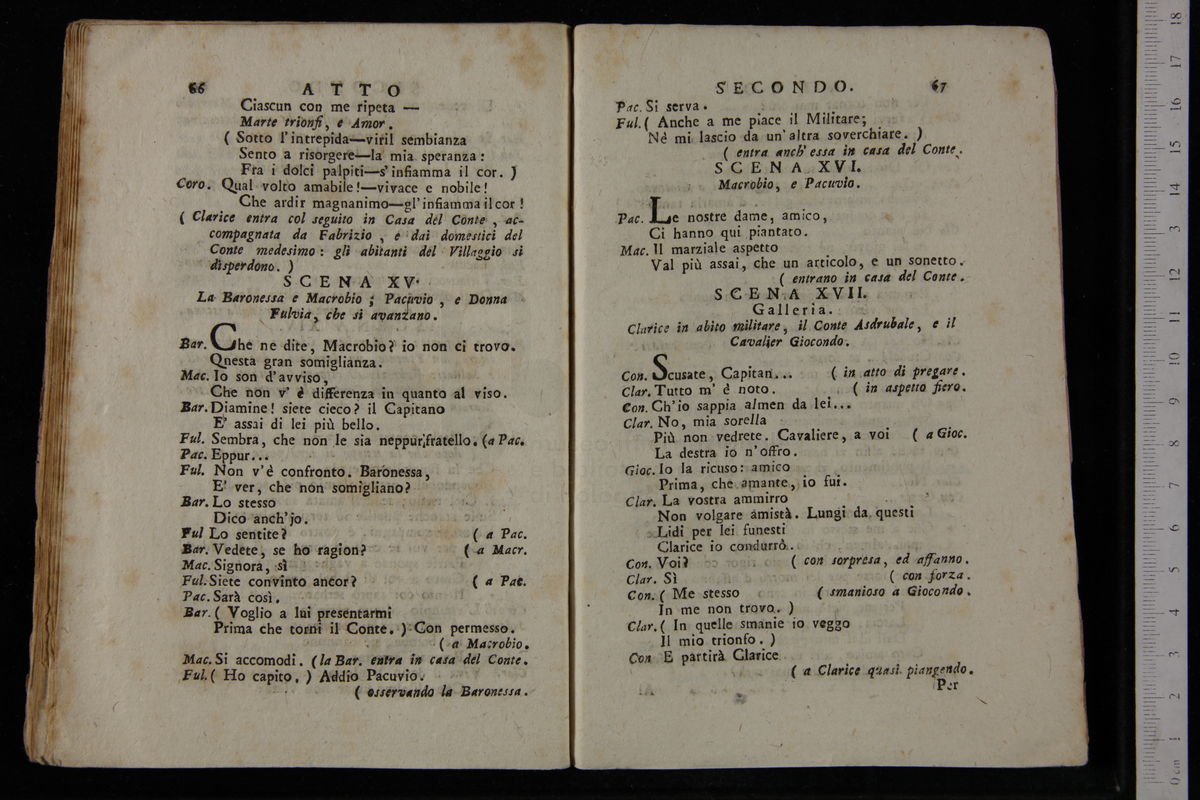 66 ATTO
Ciascun con me ripeta —
Marte trionfi, e Amor.
( Sotto l'intrepida—viril sembianza
Sento a risorgere—la mia speranza:
Fra i dolci palpiti—s'infiamma il cor. )
Coro. Qual volto amabile!—vivace e nobile!
Che ardir magnanimo—gl'infiamma il cor!
( Clarice entra col seguito in Casa del Conte, ac-
compagnata da Fabrizio, e dai domestici del
Conte medesimo: gli abitanti del Villaggio si
disperdono. )
SCENA XV.
La Baronessa e Macrobio; Pacuvio, e Donna
Fulvia, che si avanzano.
Bar. Che ne dite, Macrobio? io non ci trovo.
Questa gran somiglianza.
Mac. Io son d'avviso,
Che non v'è differenza in quanto al viso.
Bar. Diamine! siete cieco? il Capitano
E' assai di lei più bello.
Ful. Sembra, che non le sia neppur fratello. (a Pac.
Pac. Eppur...
Ful. Non v'è confronto. Baronessa,
E' ver, che non somigliano?
Bar. Lo stesso
Dico anch'jo.
Ful Lo sentite? ( a Pac.
Bar. Vedete, se ho ragion? ( a Macr.
Mac. Signora, sì
Ful. Siete convinto ancor? ( a Pac.
Pac. Sarà così.
Bar. ( Voglio a lui presentarmi
Prima che torni il Conte. ) Con permesso.
( a Macrobio.
Mac. Si accomodi. (la Bar. entra in casa del Conte.
Ful. ( Ho capito. ) Addio Pacuvio.
( osservando la Baronessa.
SECONDO. 67
Pac. Si serva.
Ful. ( Anche a me piace il Militare;
Nè mi lascio da un'altra soverchiare. )
( entra anch'essa in casa del Conte.
SCENA XVI.
Macrobio, e Pacuvio.
Pac. Le nostre dame, amico,
Ci hanno qui piantato.
Mac. Il marziale aspetto
Val più assai, che un articolo, e un sonetto.
( entrano in casa del Conte.
SCENA XVII.
Galleria.
Clarice in abito militare, il Conte Asdrubale, e il
Cavalier Giocondo.
Con. Scusate, Capitan... ( in atto di pregare.
Clar. Tutto m'è noto. ( in aspetto fiero.
Con. Ch'io sappia almen da lei...
Clar. No, mia sorella
Più non vedrete. Cavaliere, a voi ( a Gioc.
La destra io n'offro.
Gioc. Io la ricuso: amico
Prima, che amante, io fui.
Clar. La vostra ammirro
Non volgare amistà. Lungi da questi
Lidi per lei funesti
Clarice io condurrò.
Con. Voi? ( con sorpresa, ed affanno.
Clar. Sì ( con forza.
Con. ( Me stesso ( smanioso a Giocondo.
In me non trovo. )
Clar. ( In quelle smanie io veggo
Il mio trionfo. )
Con E partirà Clarice
( a Clarice quasi piangendo.
Per
0 cm 1 2 3 4 5 6 7 8 9 10 11 12 13 14 15 16 17 18